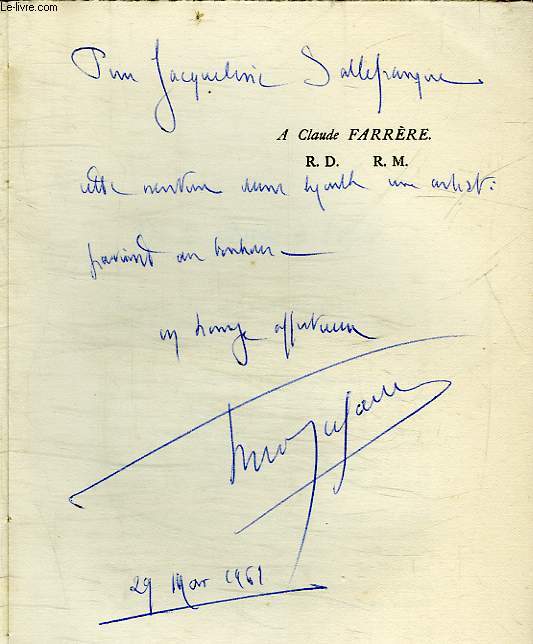 Le-livre.com
Pour Jacqueline Sallefranque
A Claude FARRÈRE.
R. D. R. M.
cette aventure dans laquelle une artiste
parvient au bonheur —
en hommage affectueux
29 Mar 1961